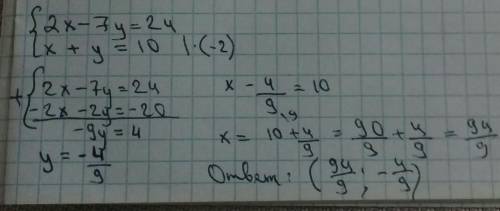 {2x - 7y = 24
{x + y = 10 | · (-2)
+ {2x - 7y = 24
{-2x - 2y = -20
-9y = 4
y = -4/9
x - 4/9 = 10
x = 10 + 4/9 = 90/9 + 4/9 = 94/9
Ответ: (94/9 ; -4/9)